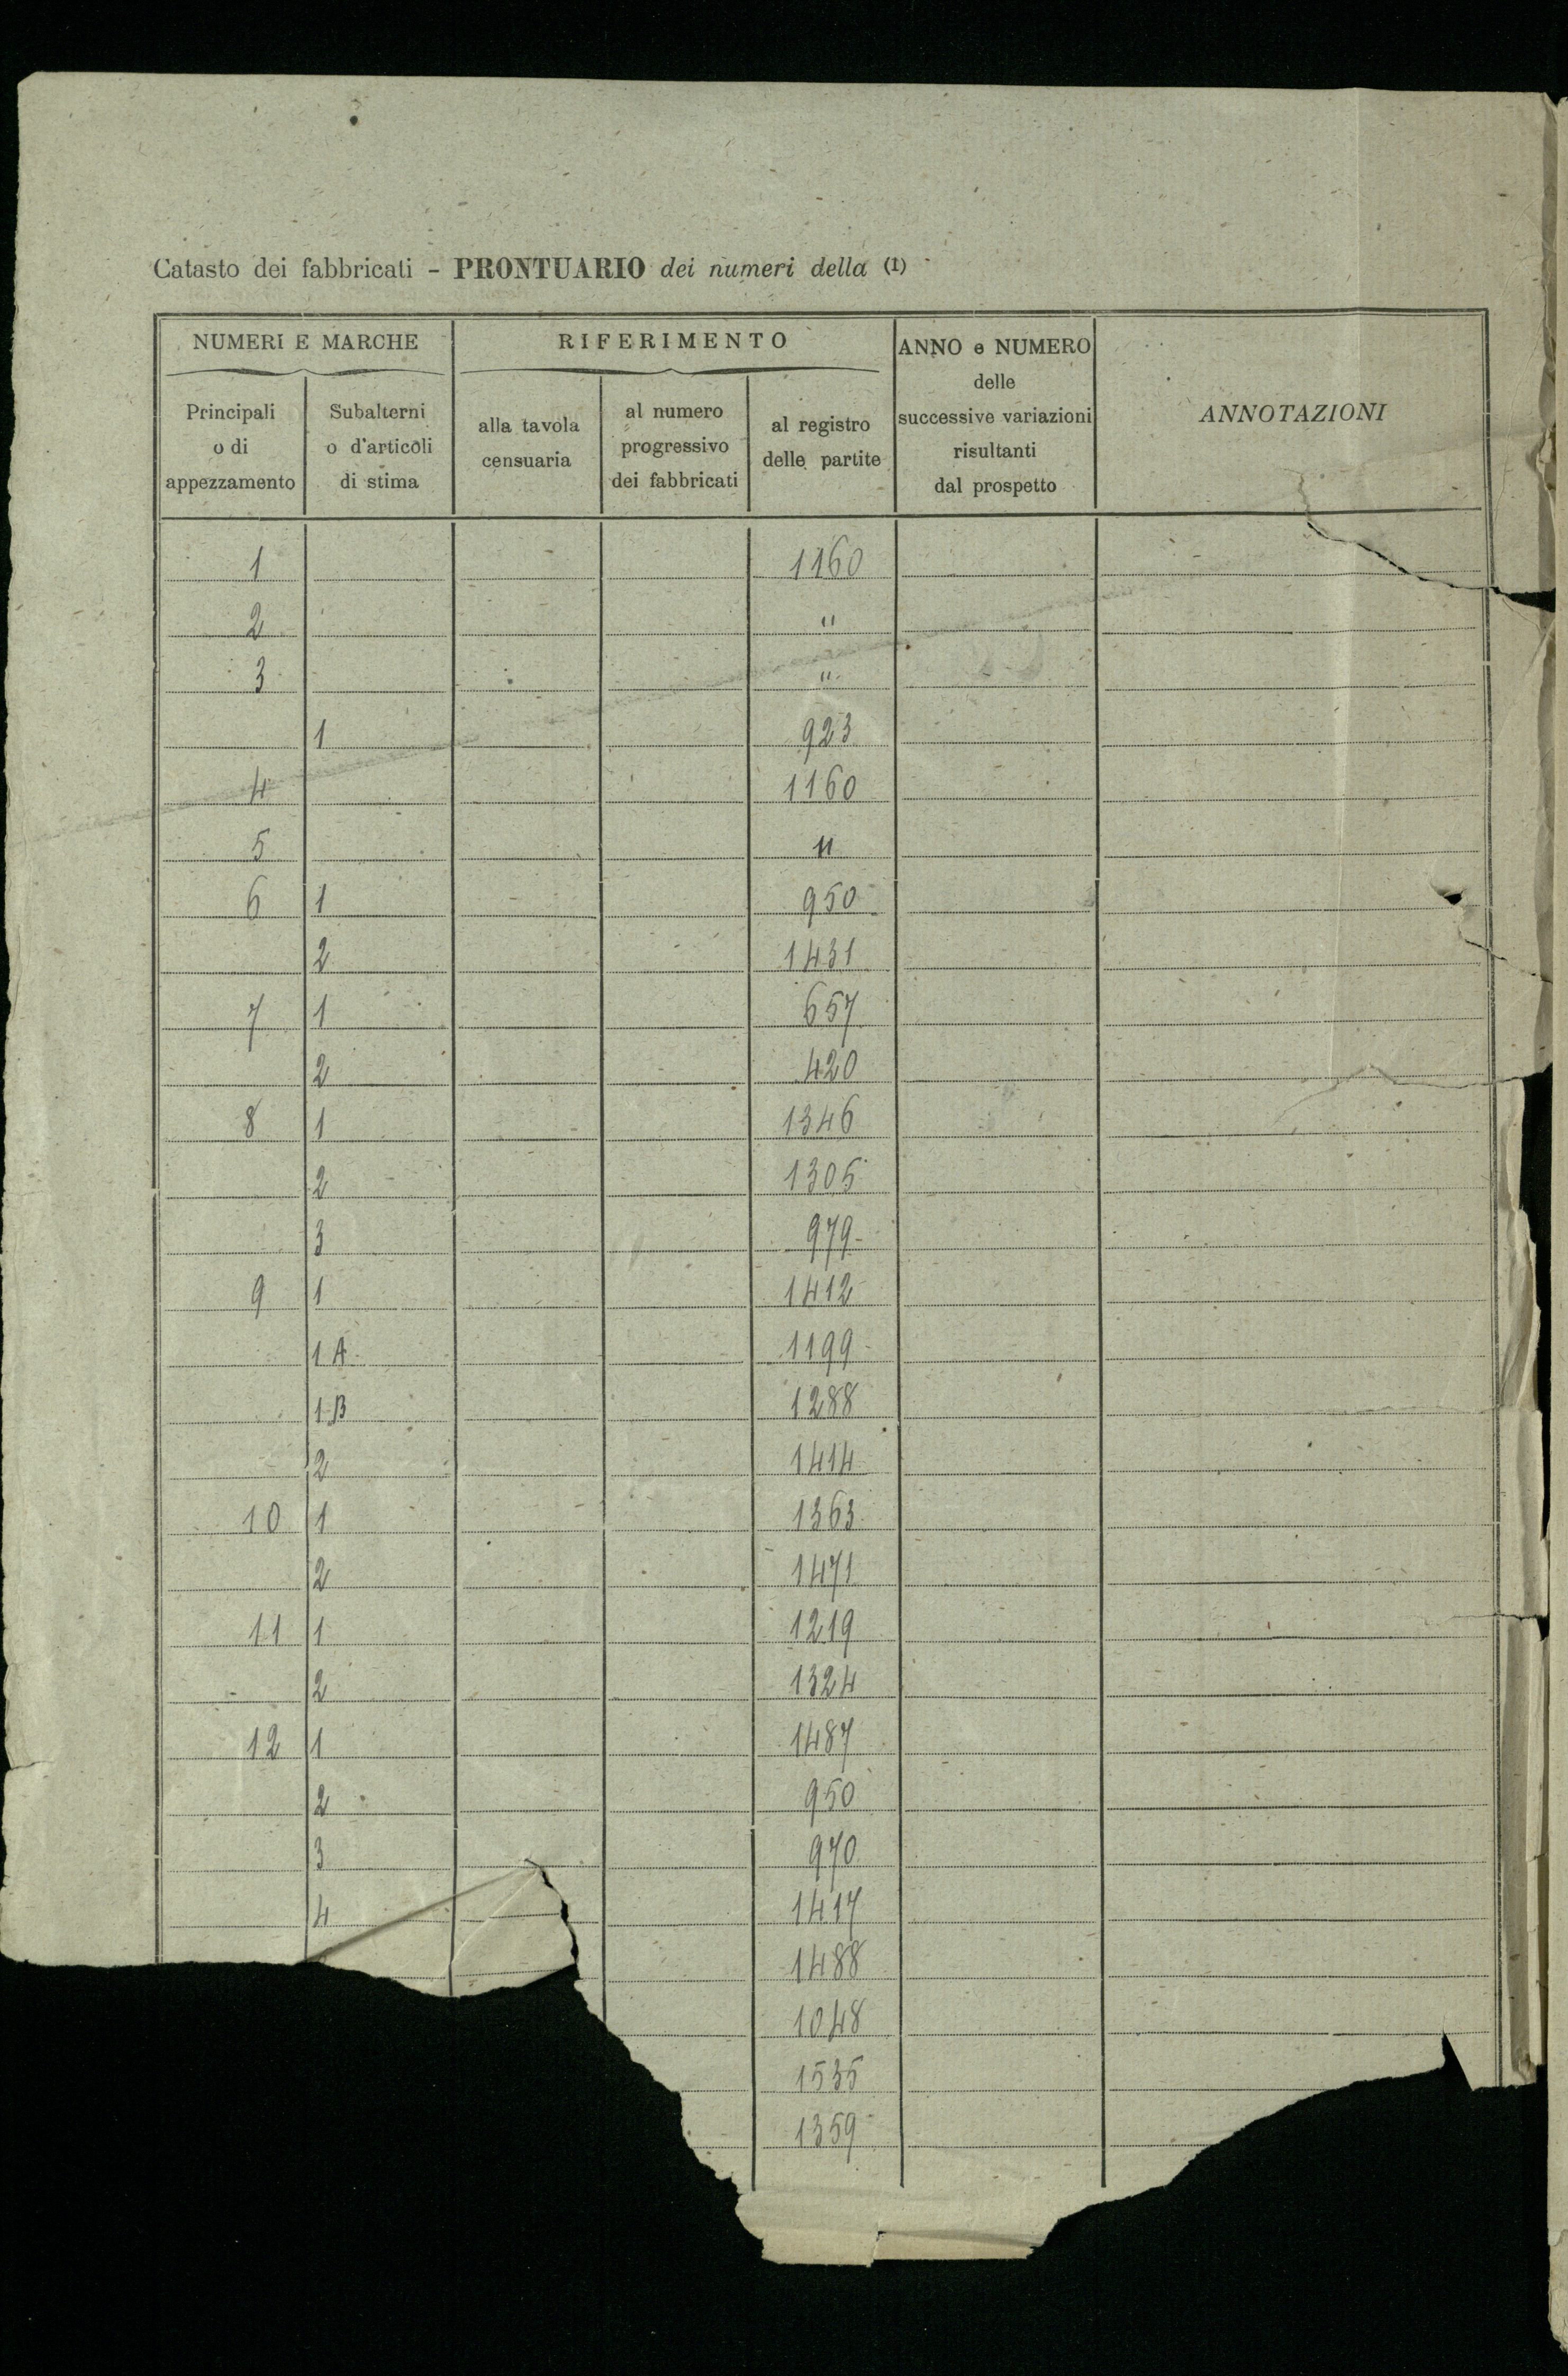 Catasto dei fabbricati - PRONTUARIO dei numeri della (1)
NUMERI E MARCHE
RIFERIMENTO
ANNO e NUMERO
delle
successive variazioni
risultanti
dal prospetto
ANNOTAZIONI
Principali
o di
appezzamento
Subalterni
o d'articoli
di stima
alla tavola
censuaria
al numero
progressivo
dei fabbricati
al registro
delle partite
1 1160
2 "
3 "
1 923
4 1160
5 "
6 1 950
2 1431
7 1 657
2 420
8 1 1346
2 1305
3 979
9 1 1412
1 A 1199
1 B 1288
2 1414
10 1 1363
2 1471
11 1 1219
2 1324
12 1 1487
2 950
3 970
4 1417
1488
1048
1535
1359